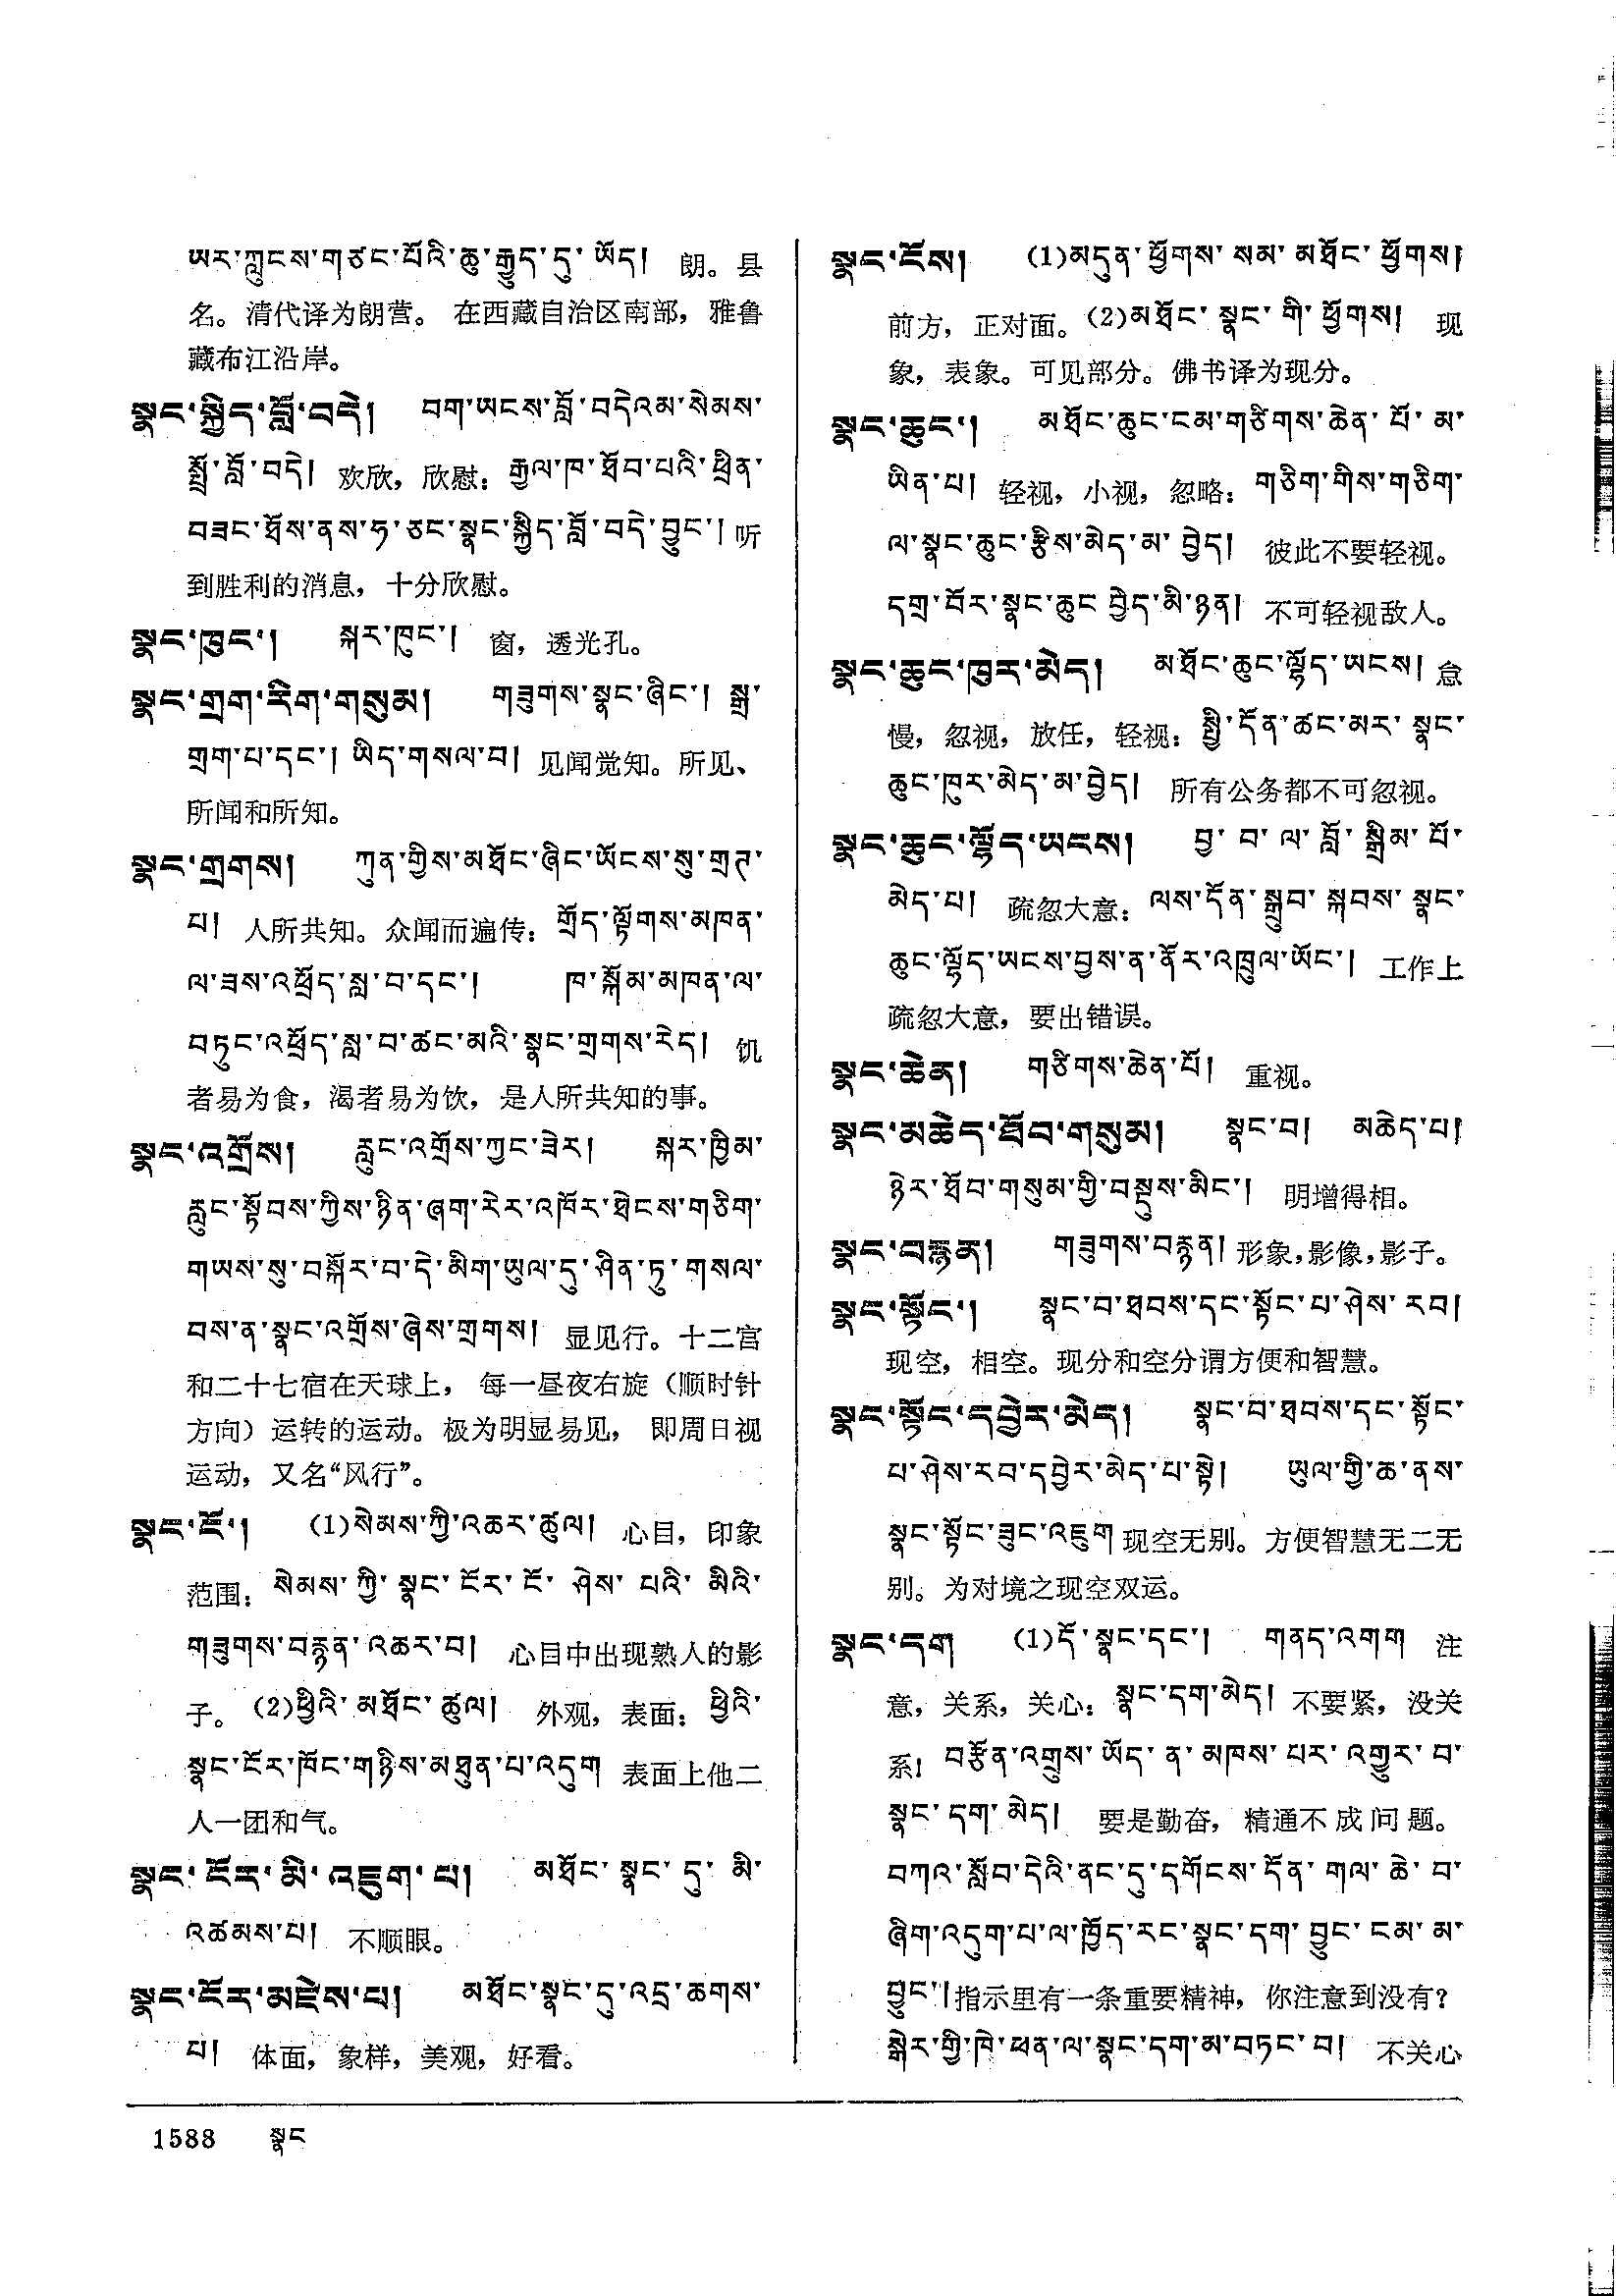 ཡར་ཀླུངས་གཙང་པོའི་ཆུ་རྒྱུད་དུ་ཡོད། 朗。县
名。清代译为朗营。 在西藏自治区南部，雅鲁
藏布江沿岸。
སྣང་སྐྱིད་བློ་བདེ། བག་ཡངས་བློ་བདེའམ་སེམས་
སྤྲོ་བློ་བདེ། 欢欣，欣慰：རྒྱལ་ཁ་ཐོབ་པའི་ཕྲིན་
བཟང་ཐོས་ནས་ཧ་ཅང་སྣང་སྐྱིད་བློ་བདེ་བྱུང་། 听
到胜利的消息，十分欣慰。
སྣང་ཁུང་། སྐར་ཁུང་། 窗，透光孔。
སྣང་གྲག་རིག་གསུམ། གཟུགས་སྣང་ཞིང་། སྒྲ་
གྲག་པ་དང་། ཡིད་གསལ་བ། 见闻觉知。所见、
所闻和所知。
སྣང་གྲགས། ཀུན་གྱིས་མཐོང་ཞིང་ཡོངས་སུ་གྲཊ་
པ། 人所共知。众闻而遍传：གྲོད་ལྟོགས་མཁན་
ལ་ཟས་འཕྲོད་སླ་བ་དང་། ཁ་སྐོམ་མཁན་ལ་
བཏུང་འཕྲོད་སླ་བ་ཚང་མའི་སྣང་གྲགས་རེད། 饥
者易为食，渴者易为饮，是人所共知的事。
སྣང་འགྲོས། རླུང་འགྲོས་ཀྱང་ཟེར། སྐར་ཁྱིམ་
རླུང་སྟོབས་ཀྱིས་ཉིན་ཞག་རེར་འཁོར་ཐེངས་གཅིག་
གཡས་སུ་བསྐོར་བ་དེ་མིག་ཡུལ་དུ་ཤིན་ཏུ་གསལ་
བས་ན་སྣང་འགྲོས་ཞེས་གྲགས། 显见行。十二宫
和二十七宿在天球上， 每一昼夜右旋（顺时针
方向）运转的运动。极为明显易见， 即周日视
运动，又名“风行”。
སྣང་ངོ་། (1)སེམས་ཀྱི་འཆར་ཚུལ། 心目，印象
范围：སེམས་ཀྱི་སྣང་ངོར་ངོ་ཤེས་པའི་མིའི་
གཟུགས་བརྙན་འཆར་བ། 心目中出现熟人的影
子。(2)ཕྱིའི་མཐོང་ཚུལ། 外观，表面：ཕྱིའི་
སྣང་ངོར་ཁོང་གཉིས་མཐུན་པ་འདུག 表面上他二
人一团和气。
སྣང་ངོར་མི་འཇུག་པ། མཐོང་སྣང་དུ་མི་
འཚམས་པ། 不顺眼。
སྣང་ངོར་མཛེས་པ། མཐོང་སྣང་དུ་འདྲ་ཆགས་
པ། 体面，象样，美观，好看。
སྣང་ངོས། (1)མདུན་ཕྱོགས་སམ་མཐོང་ཕྱོགས།
前方，正对面。(2)མཐོང་སྣང་གི་ཕྱོགས། 现
象，表象。可见部分。佛书译为现分。
སྣང་ཆུང་། མཐོང་ཆུང་ངམ་གཙིགས་ཆེན་པོ་མ་
ཡིན་པ། 轻视，小视，忽略：གཅིག་གིས་གཅིག་
ལ་སྣང་ཆུང་རྩིས་མེད་མ་བྱེད། 彼此不要轻视。
དགྲ་བོར་སྣང་ཆུང་བྱེད་མི་ཉན། 不可轻视敌人。
སྣང་ཆུང་ཁུར་མེད། མཐོང་ཆུང་ལྷོད་ཡངས། 怠
慢，忽视，放任，轻视：སྤྱི་དོན་ཚང་མར་སྣང་
ཆུང་ཁུར་མེད་མ་བྱེད། 所有公务都不可忽视。
སྣང་ཆུང་ལྷོད་ཡངས། བྱ་བ་ལ་བློ་སྒྲིམ་པོ་
མེད་པ། 疏忽大意：ལས་དོན་སྒྲུབ་སྐབས་སྣང་
ཆུང་ལྷོད་ཡངས་བྱས་ན་ནོར་འཁྲུལ་ཡོང་། 工作上
疏忽大意，要出错误。
སྣང་ཆེན། གཙིགས་ཆེན་པོ། 重视。
སྣང་མཆེད་ཐོབ་གསུམ། སྣང་བ། མཆེད་པ།
ཉེར་ཐོབ་གསུམ་གྱི་བསྡུས་མིང་། 明增得相。
སྣང་བརྙན། གཟུགས་བརྙན། 形象，影像，影子。
སྣང་སྟོང་། སྣང་བ་ཐབས་དང་སྟོང་པ་ཤེས་རབ།
现空，相空。现分和空分谓方便和智慧。
སྣང་སྟོང་དབྱེར་མེད། སྣང་བ་ཐབས་དང་སྟོང་
པ་ཤེས་རབ་དབྱེར་མེད་པ་སྟེ། ཡུལ་གྱི་ཆ་ནས་
སྣང་སྟོང་ཟུང་འཇུག 现空无别。方便智慧无二无
别。为对境之现空双运。
སྣང་དག (1)དོ་སྣང་དང་། གནད་འགག 注
意，关系，关心：སྣང་དག་མེད། 不要紧，没关
系！བརྩོན་འགྲུས་ཡོད་ན་མཁས་པར་འགྱུར་བ་
སྣང་དག་མེད། 要是勤奋，精通不成问题。
བཀའ་སློབ་དེའི་ནང་དུ་དགོངས་དོན་གལ་ཆེ་བ་
ཞིག་འདུག་པ་ལ་ཁྱོད་རང་སྣང་དག་བྱུང་ངམ་མ་
བྱུང་། 指示里有一条重要精神，你注意到没有？
སྒེར་གྱི་ཁེ་ཕན་ལ་སྣང་དག་མ་བཏང་བ། 不关心
1588 སྣང